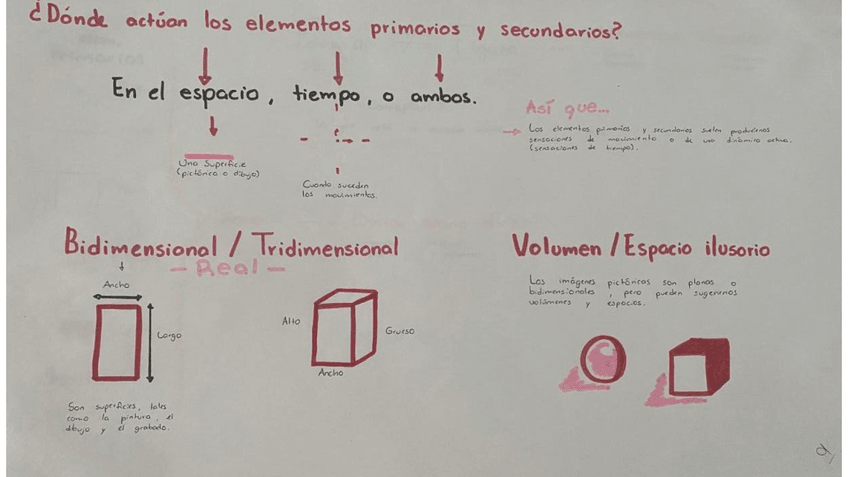 ¿Dónde actúan los elementos primarios y secundarios?
En el espacio, tiempo, o ambos.
Una Superficie
(pictórica o dibujo)
Cuando suceden
los movimientos.
Así que...
Los elementos primarios y secundarios suelen producirnos
sensaciones de movimiento o de una dinámica activa.
(sensaciones de tiempo).
Bidimensional / Tridimensional
- Real -
Ancho
Largo
Son superficies, tales
como la pintura, el
dibujo y el grabado.
Alto
Grueso
Ancho
Volumen / Espacio ilusorio
Las imágenes pictóricas son planas o
bidimensionales, pero pueden sugerirnos
volúmenes y espacios.